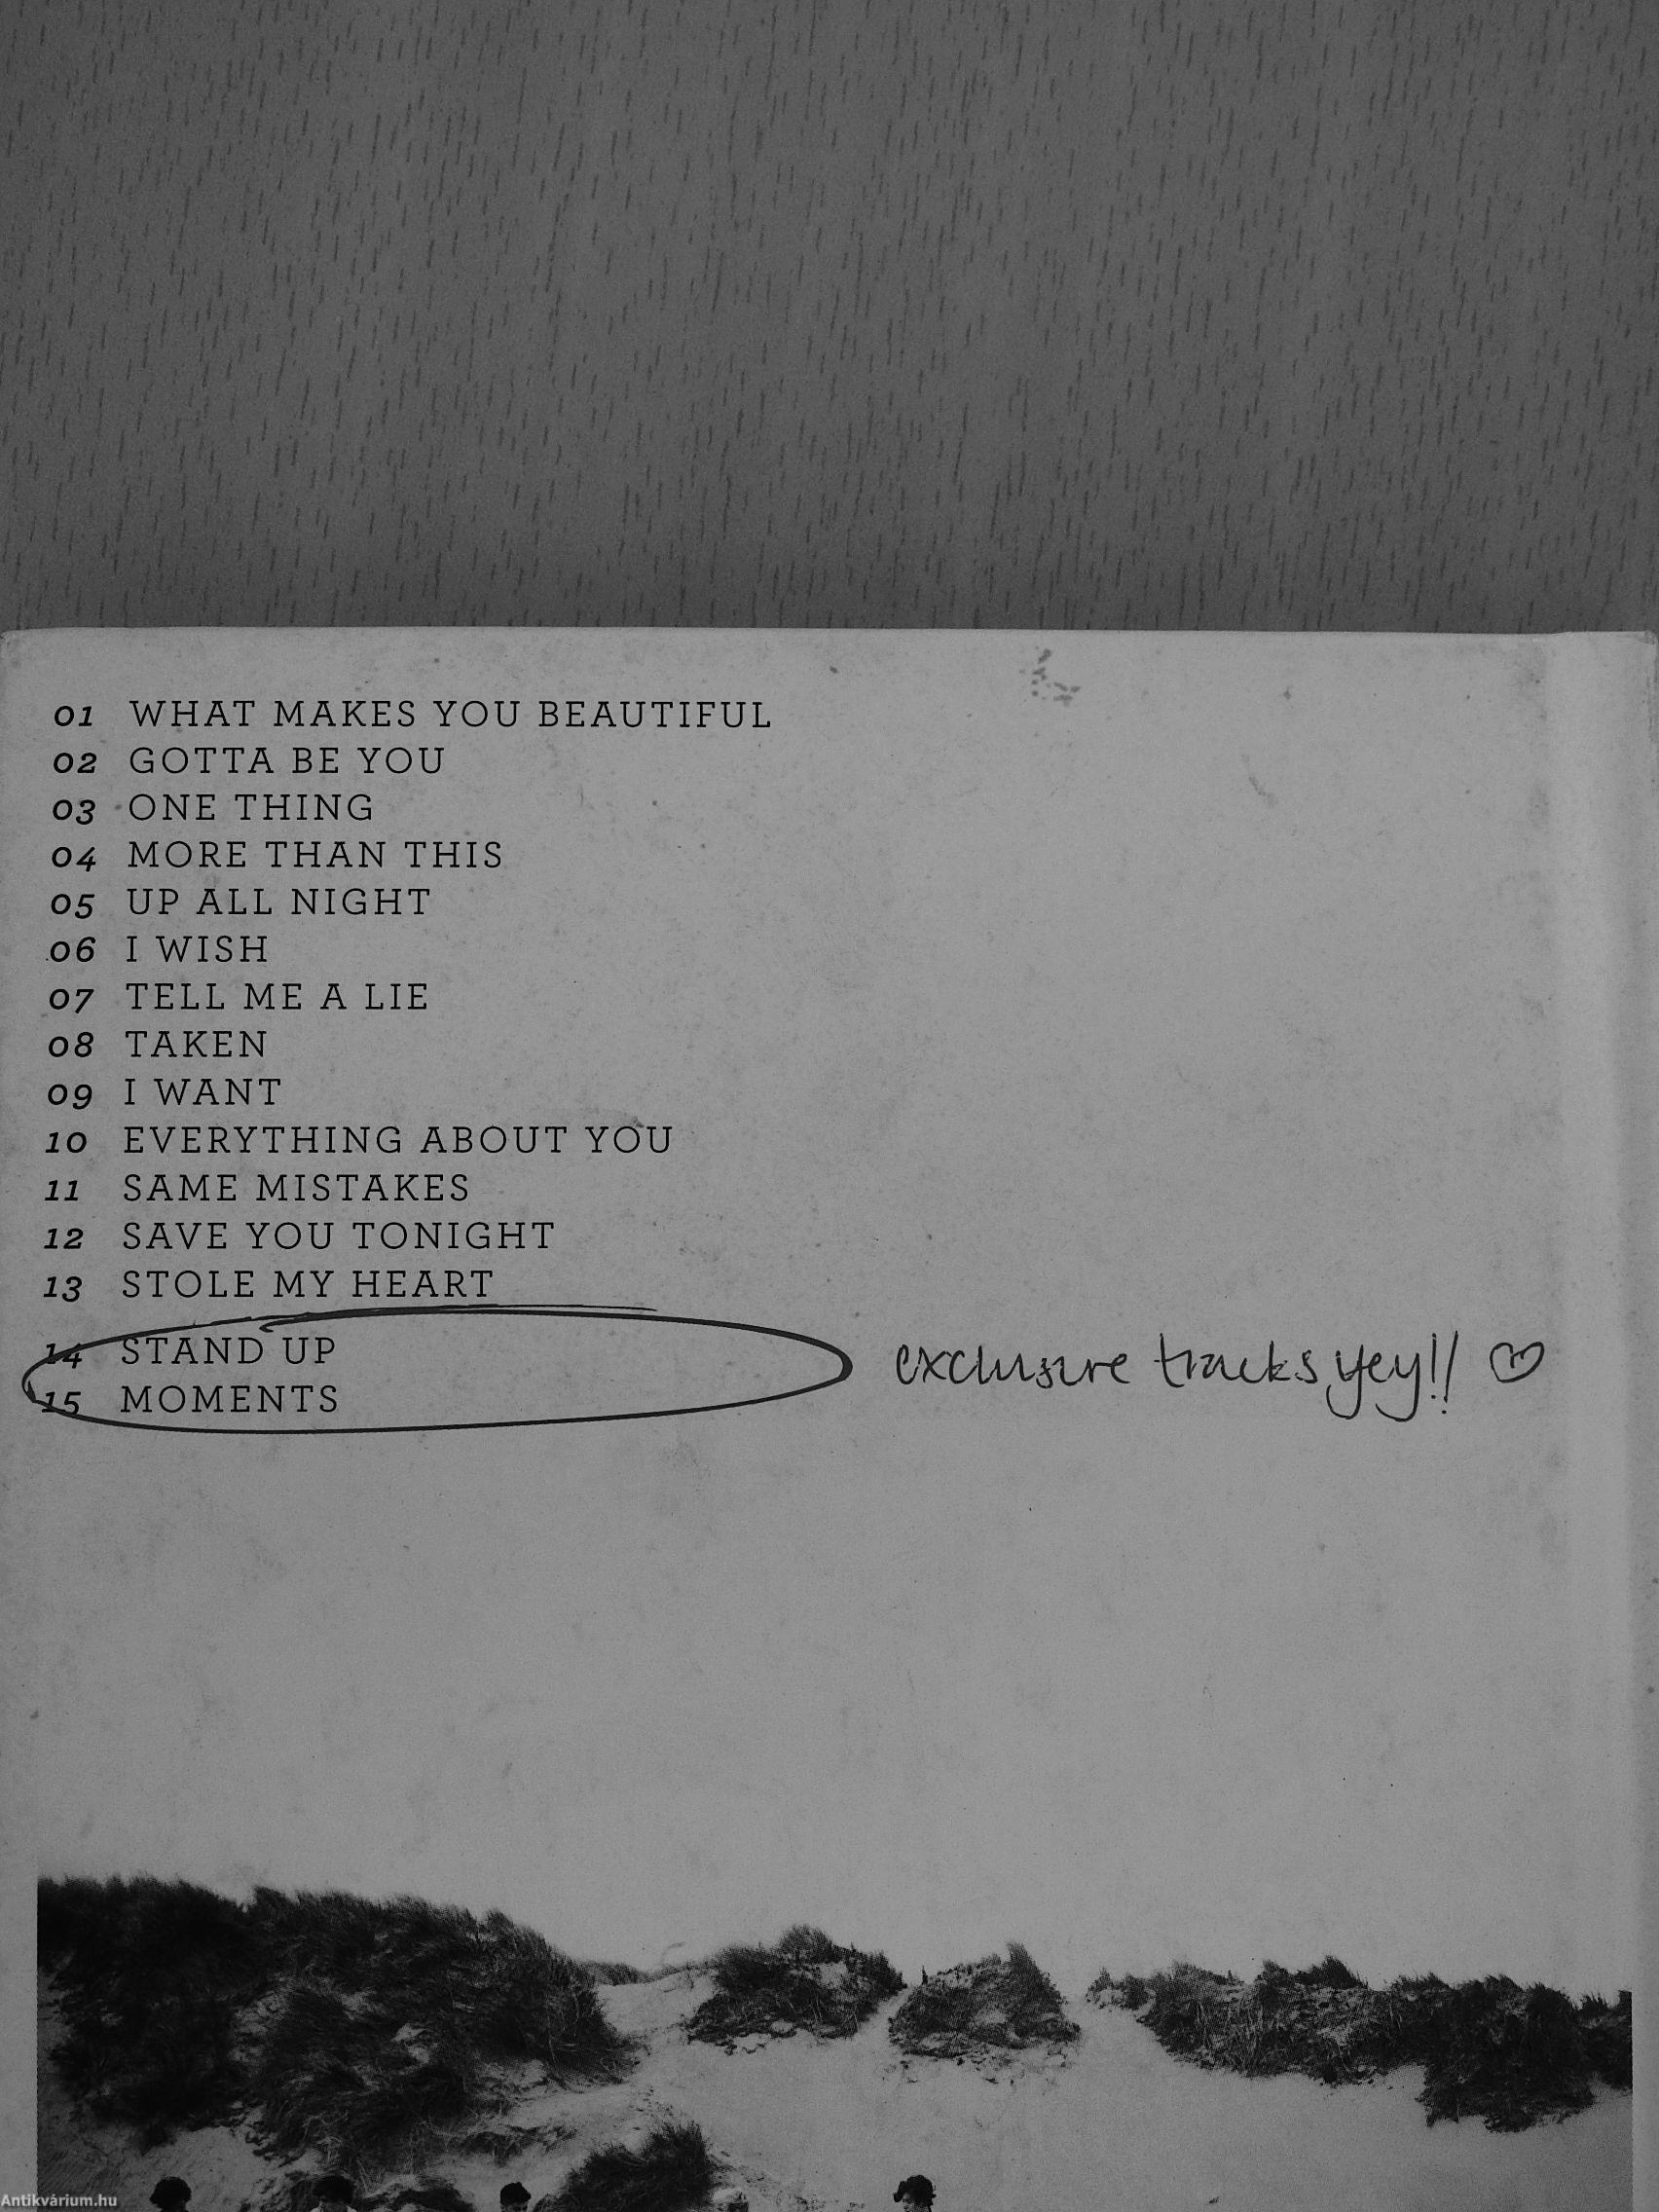 01 WHAT MAKES YOU BEAUTIFUL
02 GOTTA BE YOU
03 ONE THING
04 MORE THAN THIS
05 UP ALL NIGHT
06 I WISH
07 TELL ME A LIE
08 TAKEN
09 I WANT
10 EVERYTHING ABOUT YOU
11 SAME MISTAKES
12 SAVE YOU TONIGHT
13 STOLE MY HEART
14 STAND UP
15 MOMENTS
exclusive tracks yey!! ♡
Antikvárium.hu